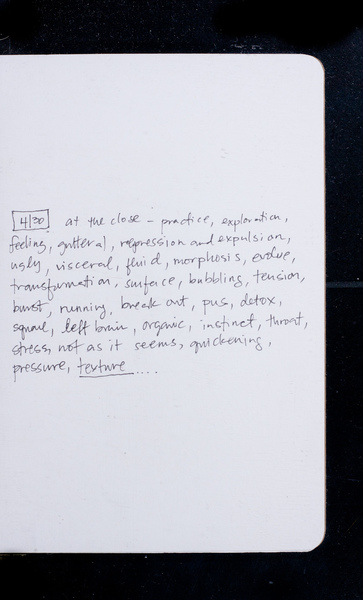 4/30 at the close – practice, exploration,
feeling, gutteral, repression and expulsion,
ugly, visceral, fluid, morphosis, evolve,
transformation, surface, bubbling, tension,
burst, running, break out, pus, detox,
squeal, left brain, organic, instinct, throat,
stress, not as it seems, quickening,
pressure, texture ....